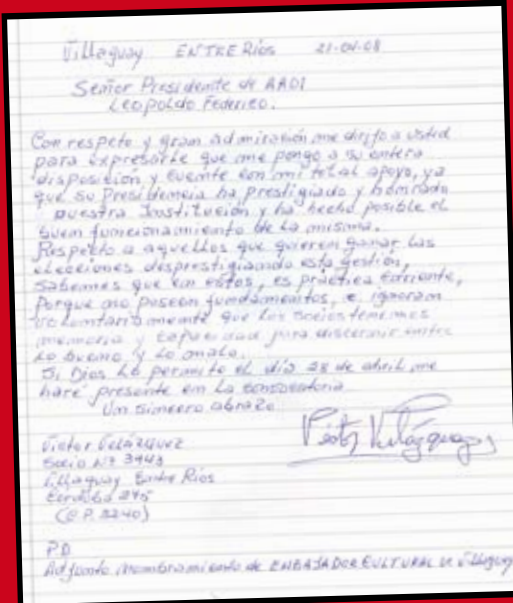 Villaguay ENTRE Ríos 21-04-08
Señor Presidente de AADI
Leopoldo Federico.
Con respeto y gran admiración me dirijo a usted
para expresarle que me pongo a su entera
disposición y cuente con mi total apoyo, ya
que su Presidencia ha prestigiado y honrado
nuestra Institución y ha hecho posible el
buen funcionamiento de la misma.
Respecto a aquellos que quieren ganar las
elecciones desprestigiando esta gestión,
sabemos que en estos, es práctica corriente,
porque no poseen fundamentos, e ignoram
voluntariamente que los socios tenemos
memoria y capacidad para discernir entre
lo bueno y lo malo.
Si Dios lo permite el día 28 de abril me
haré presente en la convocatoria
Un sincero abrazo
Víctor Velázquez
Víctor Velázquez
Socio Nº 3443
Villaguay Entre Ríos
Córdoba 275
(C.P. 3240)
PD
Adjunto nombramiento de EMBAJADOR CULTURAL de Villaguay